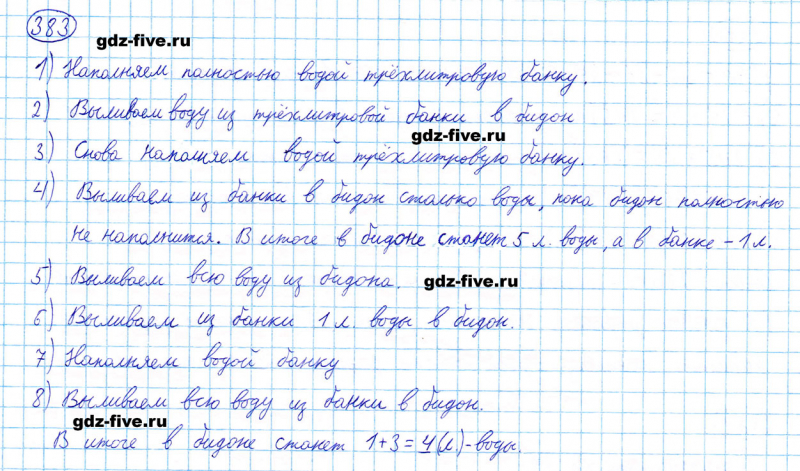 383
gdz-five.ru
1) Наполняем полностью водой трёхлитровую банку.
2) Выливаем воду из трёхлитровой банки в бидон
gdz-five.ru
3) Снова наполняем водой трёхлитровую банку.
4) Выливаем из банки в бидон столько воды, пока бидон полностью
не наполнится. В итоге в бидоне станет 5 л. воды, а в банке - 1 л.
5) Выливаем всю воду из бидона. gdz-five.ru
6) Выливаем из банки 1 л. воды в бидон.
7) Наполняем водой банку
8) Выливаем всю воду из банки в бидон.
gdz-five.ru
В итоге в бидоне станет 1+3=4(л)-воды.